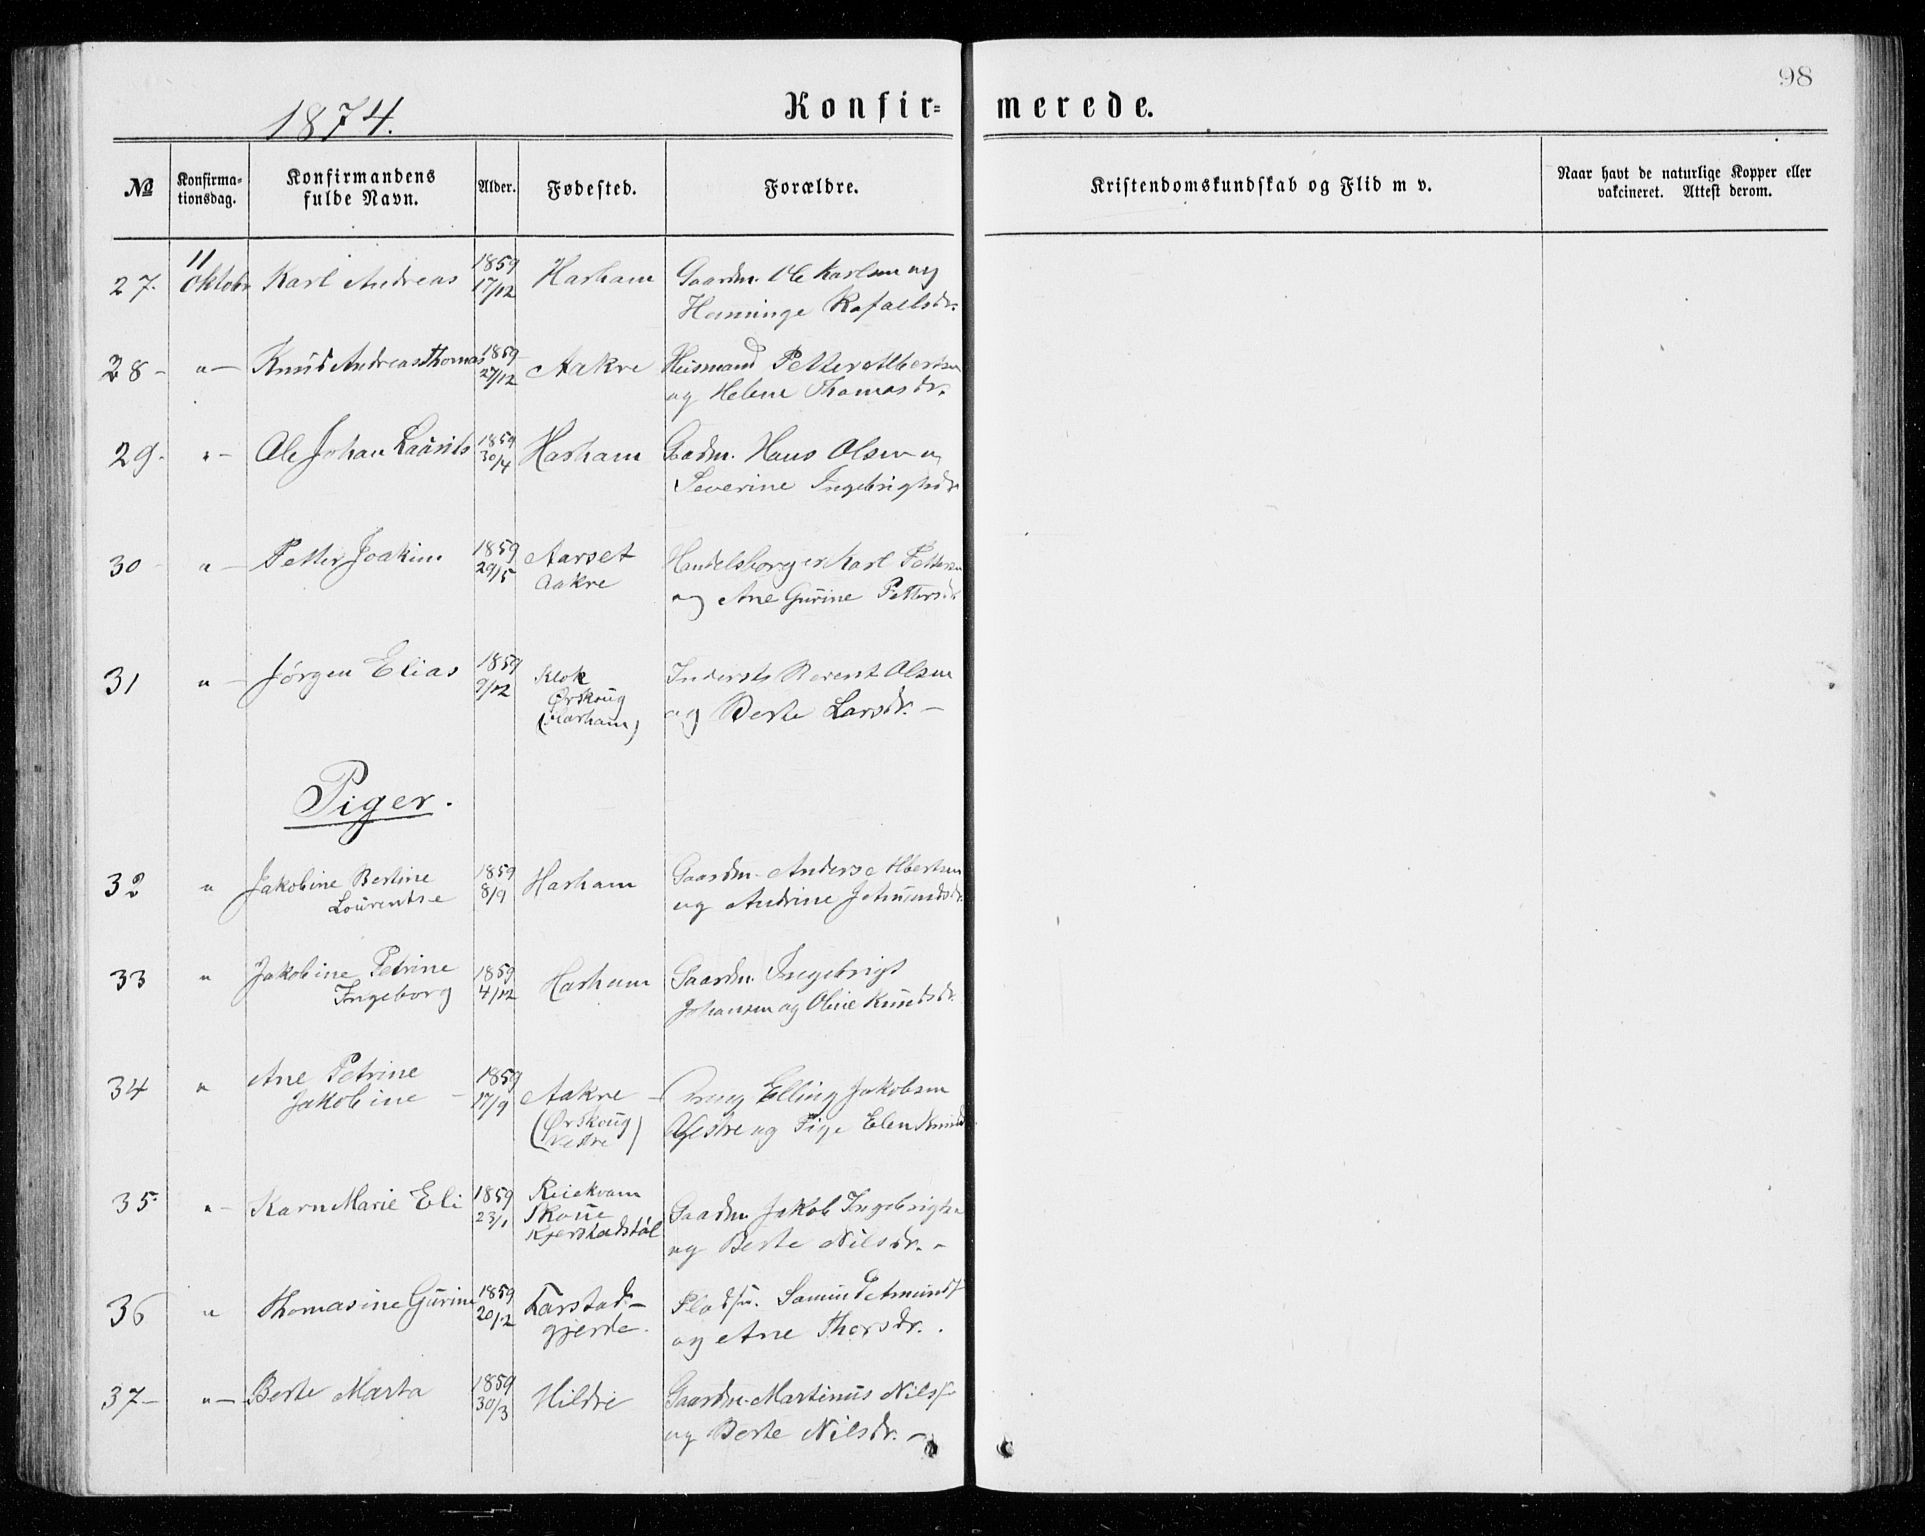 98
1874.
Konfir= merede.
№ Konfirma-tionsdag. Konfirmandens fulde Navn. Alder. Fødested. Forældre. Kristendomskundskab og Flid m v. Naar havt de naturlige Kopper eller vakcineret. Attest derom.
27. 11 Oktobr Karl Andreas 1859 17/12 Harham Gaardm. Ole Karlsen og
Henninge Rafaelsdr.
28 - " - Knud Andreas Thomas 1859 27/12 Aakre Huusmand Petter Albertsen
og Helene Thomasdr.
29. " - Ole Johan Laurits 1859 30/4 Harham Gaardm. Hans Olsen og
Severine Ingebrigtsdr
30 - " - Petter Joakim 1859 29/5 Aarset Handelsborger Karl Pettersen
Aakre og Ane Gurine Pettersdr
31 " - Jørgen Elias 1859 9/12 Klok Inderst Berent Olsen
Ørskoug
(Harham) og Berte Larsdr. -
Piger.
32 " Jakobine Bertine 1859 8/9 Harham Gaardm. Anders Albertsen
Lourentse og Andrine Jetmundsdr.
33 " Jakobine Petrine 1859 4/12 Harham Gaardm. Ingebrigt
Ingeborg Johansen og Oline Knudsdr.
34 " Ane Petrine 1859 17/9 Aakre - Elling Jakobsen
Jakobine - (Ørskoug Vestre) og Pige Elen
35. " - Karn Marie Eli 1859 23/1 Reiekvam
Skoue Gaardm. Jakob Ingebrigtsen
Kjerstadstøl og Berte Nilsdr. -
36 " Thomasine Gurine 1859 20/12 Farstad- Pladsm. Samund Amunds.
gjerde. og Ane Thorsdr.
37 - " - Berte Marta 1859 30/3 Hildre Gaardm. Martinus Nils.
og Berte Nilsdr. -